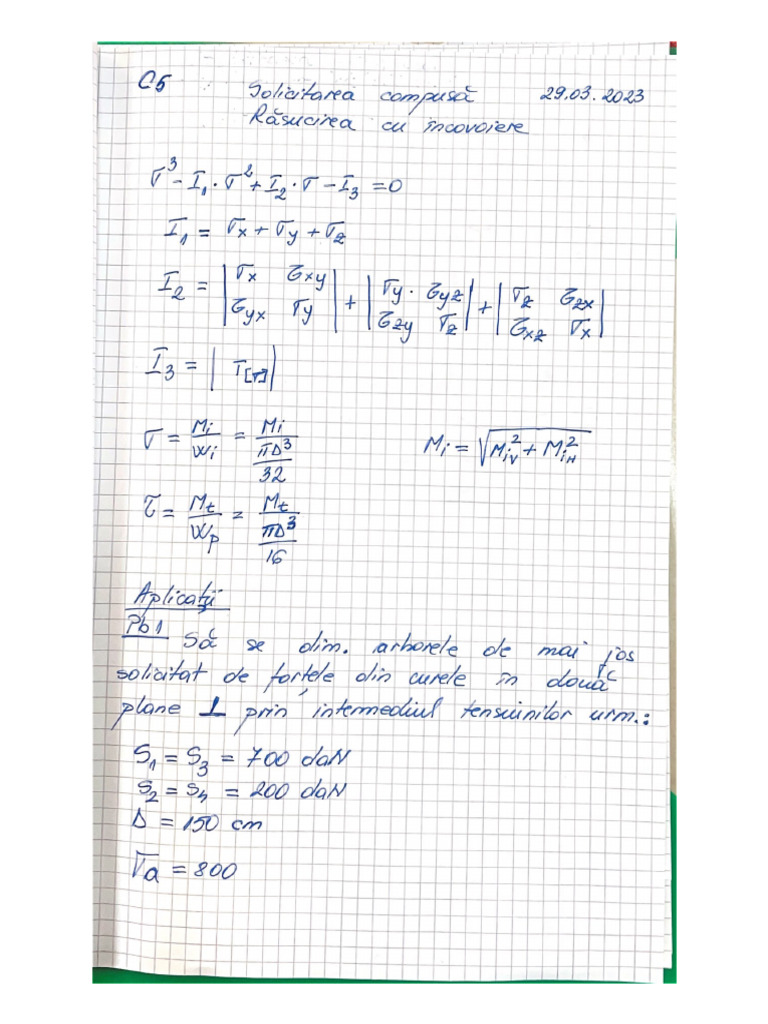 C5 Solicitarea compusă 29.03.2023
Răsucirea cu încovoiere
σ³ - I₁·σ² + I₂·σ - I₃ = 0
I₁ = σx + σy + σz
I₂ = |σx τxy; τyx σy| + |σy · τyz; τzy σz| + |σz τzx; τxz σx|
I₃ = | T[σ] |
σ = Mi/Wi = Mi/(πD³/32) Mi = √(MiV² + MiH²)
τ = Mt/Wp = Mt/(πD³/16)
Aplicații
Pb1 Să se dim. arborele de mai jos
solicitat de forțele din curele în două
plane ⊥ prin intermediul tensiunilor urm.:
S₁ = S₃ = 700 daN
S₂ = S₄ = 200 daN
D = 150 cm
σa = 800